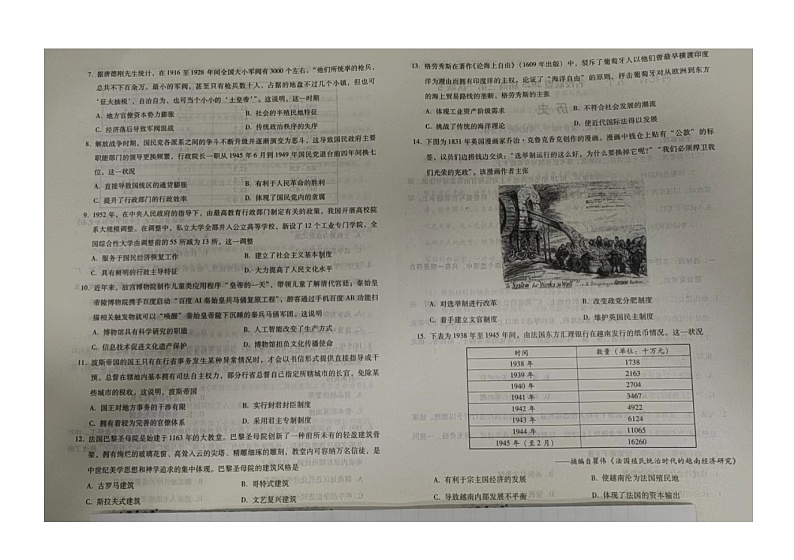 7. 据唐德刚先生统计，在 1916 至 1928 年间全国大小军阀有 3000 个左右。“他们所统率的枪兵，
总共不下百余万。最小的军阀，甚至只有枪兵数十人，占据的地盘不过几个小镇，但也可
‘征夫抽税’，自治自为，也可当个小小的‘土皇帝’”。这说明，这一时期
A. 地方官僚资本势力膨胀 B. 社会的半殖民地特征
C. 经济落后导致军阀混战 D. 传统政治秩序的失序
8. 解放战争时期，国民党各派系之间的争斗不断升级并逐渐演变为恶斗，这导致国民政府主要
职能部门的领导更换频繁，行政院长一职从 1945 年 6 月到 1949 年国民党退台前四年间换七
位。这一状况
A. 直接导致国统区的通货膨胀 B. 有利于人民革命的胜利
C. 提升了行政部门的行政效率 D. 体现了国民党内的腐腐
9. 1952 年，在中央人民政府的指导下，由最高教育行政部门制定有关的政策，我国开展高校院
系大规模调整。在调整中，私立大学全部并入公立高等学校，新设了 12 个工业专门学院，全
国综合性大学由调整前的 55 所减为 13 所。这一调整
A. 服务于国民经济恢复工作 B. 建立了社会主义基本制度
C. 具有鲜明的行政主导特征 D. 大力提高了人民文化水平
10. 近年来，故宫博物院制作儿童类应用程序“皇帝的一天”，带领儿童了解清代宫廷；秦始皇
帝陵博物院携手百度启动“百度 AR 秦始皇兵马俑复原工程”，游客通过手机百度 AR 功能扫
描相关触发物就可以“唤醒”秦始皇帝陵下沉睡的秦兵马俑军团。这说明
A. 博物馆具有科学研究的职能 B. 人工智能改变了生产方式
C. 信息技术促进文化遗产保护 D. 博物馆担负文化传播使命
11. 波斯帝国的国王只有在行省事务发生某种异常情况时，才会以书信形式提供直接指导或干
预。总督在辖地内基本拥有司法自主权力，部分行省总督自己指定所辖城市的长官，免除某
些城市的税收。这说明，波斯帝国
A. 国王对地方事务的干涉有限 B. 实行封君封臣制度
C. 拥有着较为完善的官僚体系 D. 采用君主专制制度
12. 法国巴黎圣母院是始建于 1163 年的大教堂。巴黎圣母院创新了一种前所未有的轻盈建筑骨
架，拥有绚烂的玻璃花窗、高耸入云的尖塔、精雕细琢的雕刻，教堂内可容纳万名信徒，是
中世纪美学思想和神学追求的集中体现。巴黎圣母院的建筑风格是
A. 古罗马建筑 B. 哥特式建筑
C. 斯拉夫式建筑 D. 文艺复兴建筑
13. 格劳秀斯在著作《论海上自由》（1609 年出版）中，驳斥了葡萄牙人以他们曾最早横渡印度
洋为理由而拥有印度洋的主权，论证了“海洋自由”的原则，抨击葡萄牙对从欧洲到东方
的海上贸易路线的垄断。格劳秀斯的主张
A. 体现工业资产阶级需求 B. 不符合社会发展的潮流
C. 挑战了传统的海洋理论 D. 使近代国际法得以发展
14. 下图为 1831 年英国漫画家乔治·克鲁克香克创作的漫画。漫画中钱仓上贴有“公款”的标
签，议员们边捞钱边交谈：“选举制运行的这么好，为什么要换掉它呢？”“我们必须捍卫我
们光荣的宪政”。该漫画作者主张
The System that Works so Well!!
A. 对选举制进行改革 B. 改变政党分肥制度
C. 着手建立文官制度 D. 维护英国民主制度
15. 下表为 1938 年至 1945 年间，由法国东方汇理银行在越南发行的纸币情况。这一状况
时间 数量（单位：十万元）
1938 年 1738
1939 年 2163
1940 年 2704
1941 年 3467
1942 年 4922
1943 年 6124
1944 年 11065
1945 年（至 2 月） 16260
——摘编自瞿伟《法国殖民统治时代的越南经济研究》
A. 有利于宗主国经济的发展 B. 使越南沦为法国殖民地
C. 导致越南内部发展不平衡 D. 体现了法国的资本输出